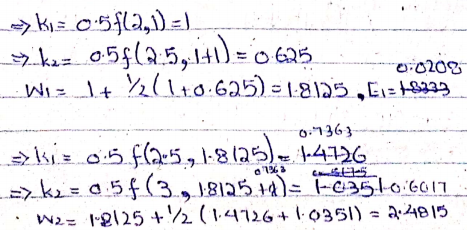 ⇒ k₁ = 0.5f(2,1) = 1
⇒ k₂ = 0.5f(2.5, 1+1) = 0.625
0.0208
W₁ = 1 + ½(1+0.625) = 1.8125, E₁ = 1.8333
0.7363
⇒ k₁ = 0.5 f(2.5, 1.8125) = 1.4726
0.7363
⇒ k₂ = 0.5f(3, 1.8125+1) = 1.0351 0.6017
W₂ = 1.8125 + ½(1.4726 + 1.0351) = 2.4815